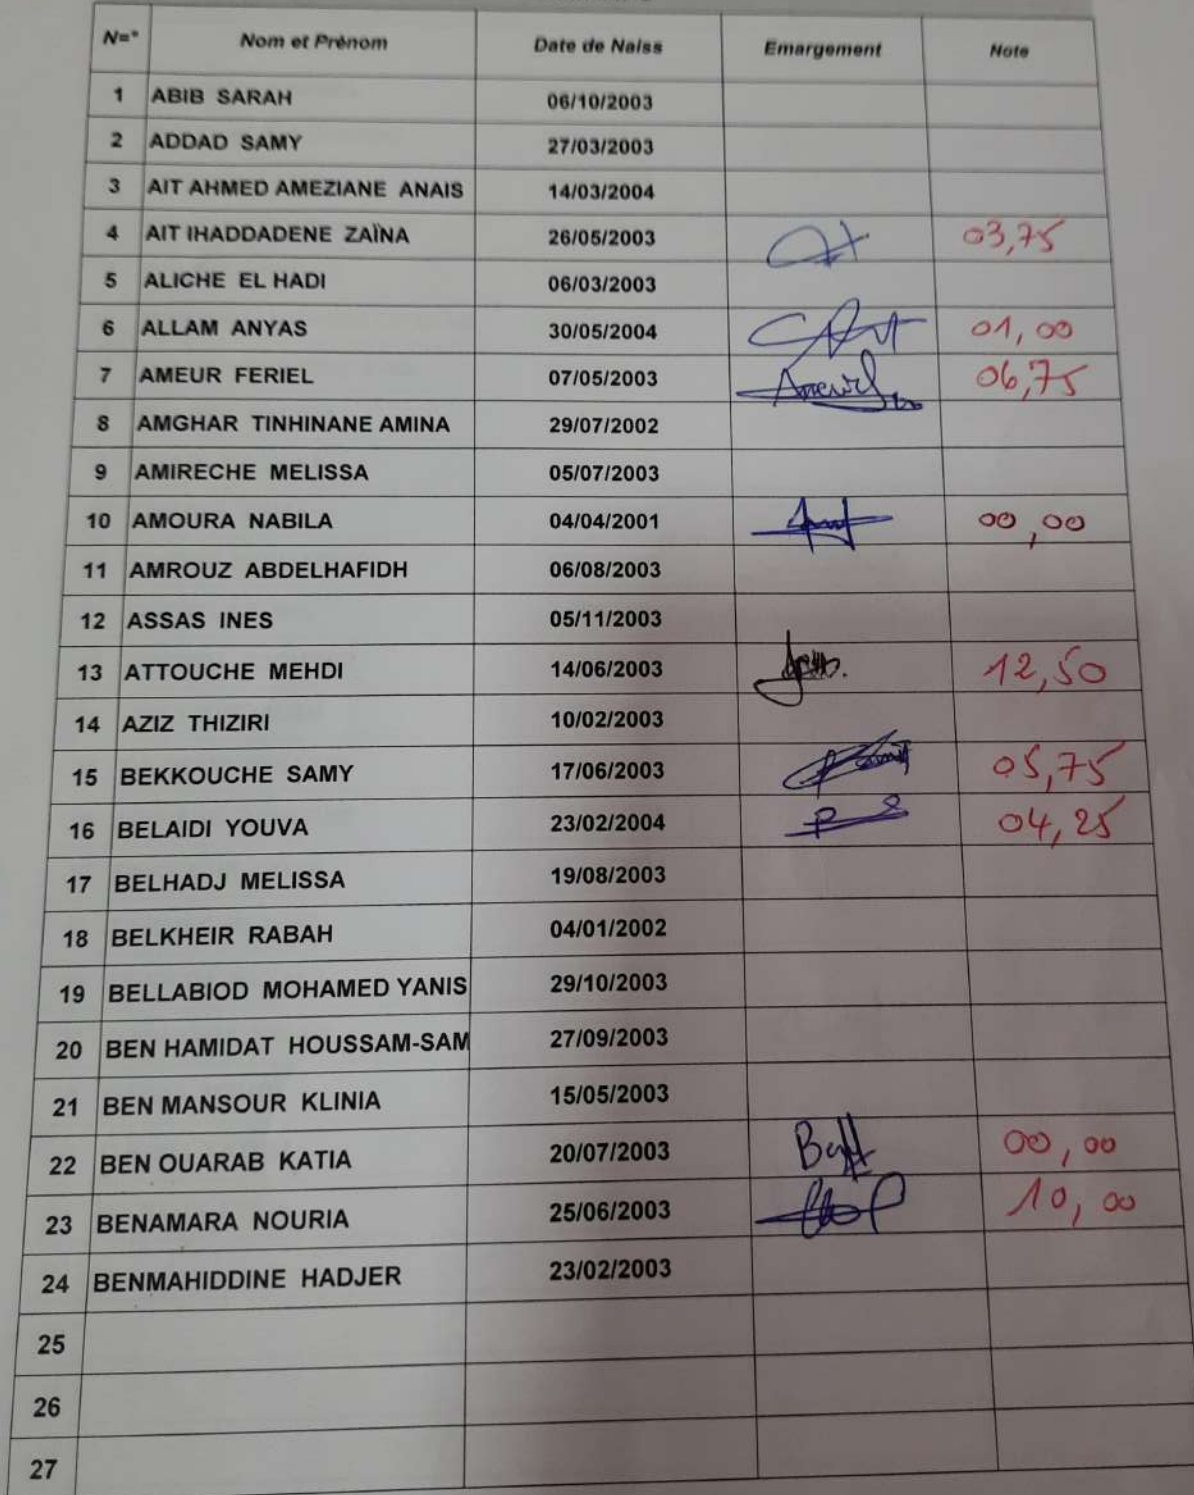 N=° Nom et Prénom Date de Naiss Emargement Note
1 ABIB SARAH 06/10/2003
2 ADDAD SAMY 27/03/2003
3 AIT AHMED AMEZIANE ANAIS 14/03/2004
4 AIT IHADDADENE ZAÏNA 26/05/2003 03,75
5 ALICHE EL HADI 06/03/2003
6 ALLAM ANYAS 30/05/2004 01,00
7 AMEUR FERIEL 07/05/2003 06,75
8 AMGHAR TINHINANE AMINA 29/07/2002
9 AMIRECHE MELISSA 05/07/2003
10 AMOURA NABILA 04/04/2001 00,00
11 AMROUZ ABDELHAFIDH 06/08/2003
12 ASSAS INES 05/11/2003
13 ATTOUCHE MEHDI 14/06/2003 12,50
14 AZIZ THIZIRI 10/02/2003
15 BEKKOUCHE SAMY 17/06/2003 05,75
16 BELAIDI YOUVA 23/02/2004 04,25
17 BELHADJ MELISSA 19/08/2003
18 BELKHEIR RABAH 04/01/2002
19 BELLABIOD MOHAMED YANIS 29/10/2003
20 BEN HAMIDAT HOUSSAM-SAM 27/09/2003
21 BEN MANSOUR KLINIA 15/05/2003
22 BEN OUARAB KATIA 20/07/2003 00,00
23 BENAMARA NOURIA 25/06/2003 10,00
24 BENMAHIDDINE HADJER 23/02/2003
25
26
27